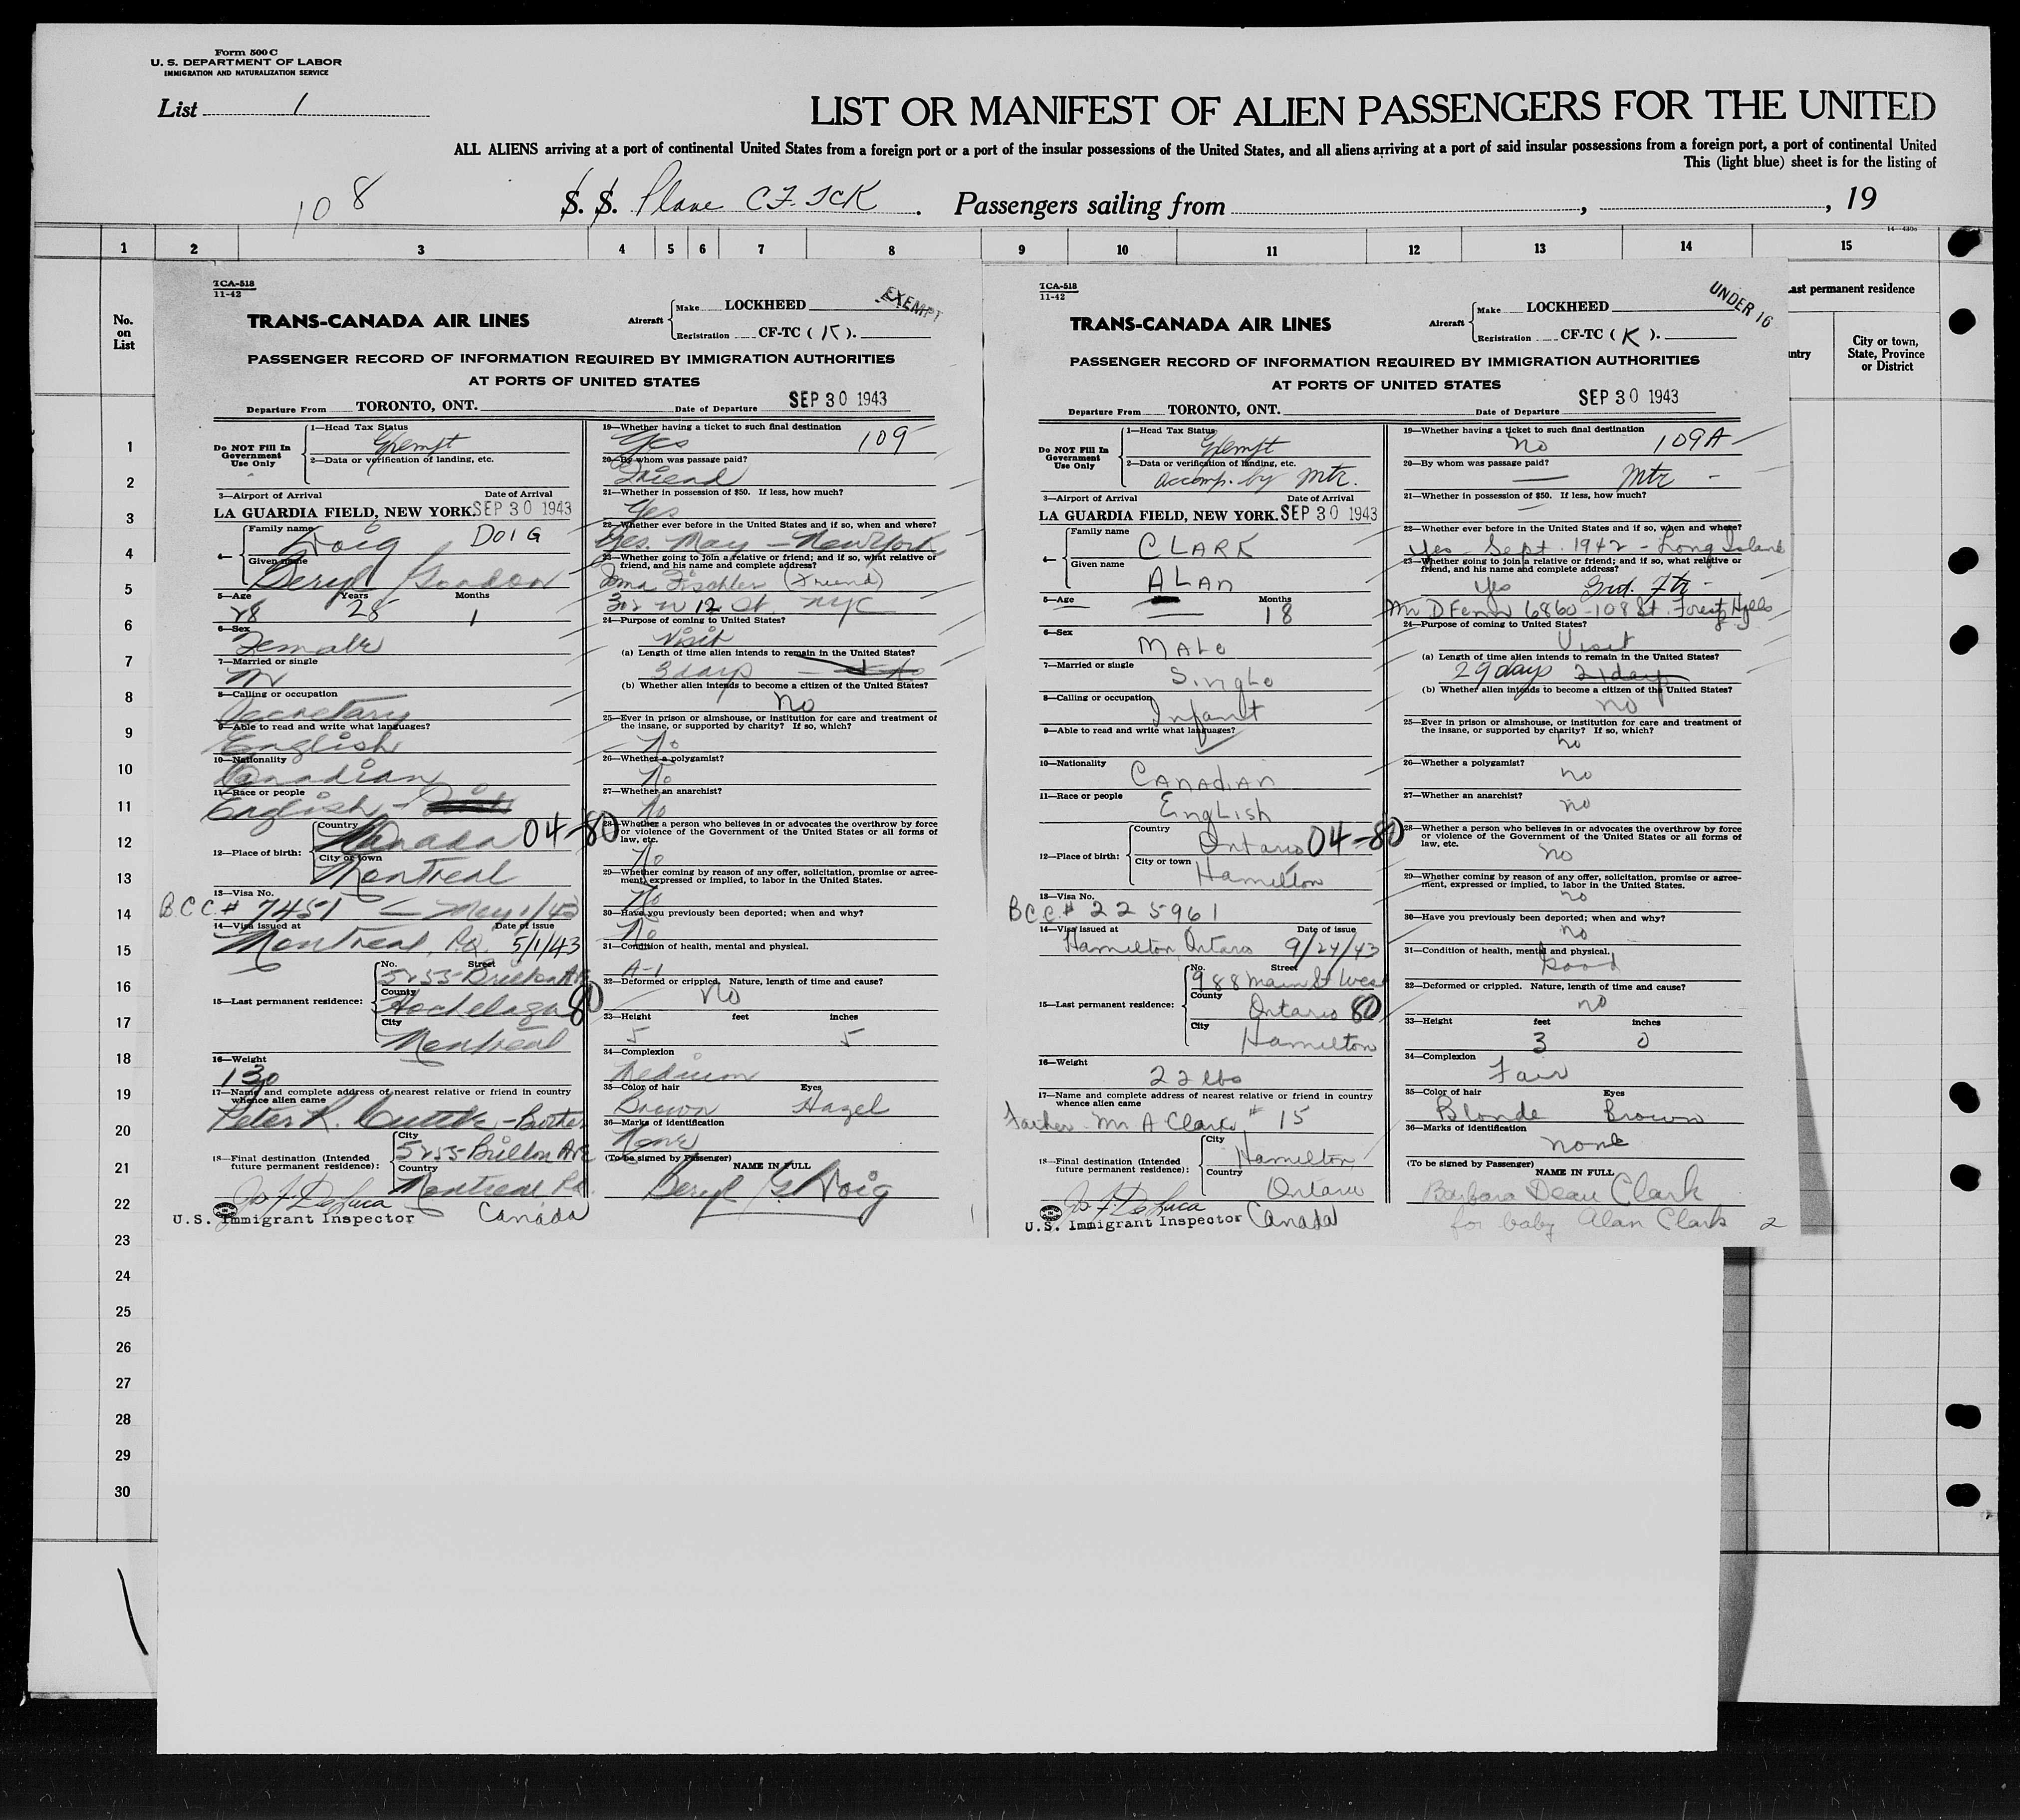 Form 500 C
U. S. DEPARTMENT OF LABOR
IMMIGRATION AND NATURALIZATION SERVICE
List 1
LIST OR MANIFEST OF ALIEN PASSENGERS FOR THE UNITED
ALL ALIENS arriving at a port of continental United States from a foreign port or a port of the insular possessions of the United States, and all aliens arriving at a port of said insular possessions from a foreign port, a port of continental United
This (light blue) sheet is for the listing of
108
S. S. Plane CF. TCK. Passengers sailing from , , 19
14—4396
1 2 3 4 5 6 7 8 9 10 11 12 13 14 15
No. on List
ast permanent residence
ntry
City or town, State, Province or District
1
2
3
4
5
6
7
8
9
10
11
12
13
14
15
16
17
18
19
20
21
22
23
24
25
26
27
28
29
30
TCA-518
11-42
EXEMPT
TRANS-CANADA AIR LINES
Aircraft
Make LOCKHEED
Registration CF-TC (K).
PASSENGER RECORD OF INFORMATION REQUIRED BY IMMIGRATION AUTHORITIES
AT PORTS OF UNITED STATES
Departure From TORONTO, ONT. Date of Departure SEP 30 1943
Do NOT Fill In Government Use Only
1—Head Tax Status
Exempt
2—Data or verification of landing, etc.
3—Airport of Arrival Date of Arrival
LA GUARDIA FIELD, NEW YORK. SEP 30 1943
4— Family name
Doig DOIG
Given name
Beryl Gordon
5—Age Years Months
28 28 1
6—Sex
Female
7—Married or single
M
8—Calling or occupation
Secretary
9—Able to read and write what languages?
English
10—Nationality
Canadian
11—Race or people
English -
12—Place of birth:
Country
Canada 04-80
City or town
Montreal
13—Visa No.
B.C.C.# 7451 — May 1/43
14—Visa issued at Date of issue
Montreal, P.Q. 5/1/43
15—Last permanent residence:
No. Street
5253 Brillon Ave
County
Hochelaga 80
City
Montreal
16—Weight
130
17—Name and complete address of nearest relative or friend in country whence alien came
Peter R. - Brother
18—Final destination (Intended future permanent residence):
City
5253 Brillon Ave
Country
Montreal P.Q.
Canada
Jos F. DeLuca
U.S. Immigrant Inspector
19—Whether having a ticket to such final destination
Yes 109
20—By whom was passage paid?
Friend
21—Whether in possession of $50. If less, how much?
Yes
22—Whether ever before in the United States and if so, when and where?
Yes. May — New York
23—Whether going to join a relative or friend; and if so, what relative or friend, and his name and complete address?
Irma Fischler (Friend)
302 W 12 St. NYC
24—Purpose of coming to United States?
Visit
(a) Length of time alien intends to remain in the United States?
3 days
(b) Whether alien intends to become a citizen of the United States?
No
25—Ever in prison or almshouse, or institution for care and treatment of the insane, or supported by charity? If so, which?
No
26—Whether a polygamist?
No
27—Whether an anarchist?
No
28—Whether a person who believes in or advocates the overthrow by force or violence of the Government of the United States or all forms of law, etc.
No
29—Whether coming by reason of any offer, solicitation, promise or agreement, expressed or implied, to labor in the United States.
No
30—Have you previously been deported; when and why?
No
31—Condition of health, mental and physical.
A-1
32—Deformed or crippled. Nature, length of time and cause?
No
33—Height feet inches
5 5
34—Complexion
Medium
35—Color of hair Eyes
Brown Hazel
36—Marks of identification
None
(To be signed by Passenger) NAME IN FULL
Beryl G. Doig
1
TCA-518
11-42
UNDER 16
TRANS-CANADA AIR LINES
Aircraft
Make LOCKHEED
Registration CF-TC (K).
PASSENGER RECORD OF INFORMATION REQUIRED BY IMMIGRATION AUTHORITIES
AT PORTS OF UNITED STATES
Departure From TORONTO, ONT. Date of Departure SEP 30 1943
Do NOT Fill In Government Use Only
1—Head Tax Status
Exempt
2—Data or verification of landing, etc.
accomp. by Mtr.
3—Airport of Arrival Date of Arrival
LA GUARDIA FIELD, NEW YORK. SEP 30 1943
4— Family name
CLARK
Given name
ALAN
5—Age Months
— 18
6—Sex
MALe
7—Married or single
SingLe
8—Calling or occupation
Infant
9—Able to read and write what languages?
10—Nationality
CANAdiAN
11—Race or people
EngLish
12—Place of birth:
Country
Ontario 04-80
City or town
Hamilton
13—Visa No.
BCC# 225961
14—Visa issued at Date of issue
Hamilton, Ontario 9/24/43
15—Last permanent residence:
No. Street
988 Main St West
County
Ontario 80
City
Hamilton
16—Weight
22 lbs
17—Name and complete address of nearest relative or friend in country whence alien came
Father - Mr A Clark, # 15
18—Final destination (Intended future permanent residence):
City
Hamilton
Country
Ontario
Canada
Jos F. DeLuca
U.S. Immigrant Inspector
19—Whether having a ticket to such final destination
No 109A
20—By whom was passage paid?
— Mtr -
21—Whether in possession of $50. If less, how much?
—
22—Whether ever before in the United States and if so, when and where?
Yes - Sept. 1942 - Long Island
23—Whether going to join a relative or friend; and if so, what relative or friend, and his name and complete address?
Yes Grd. Ftr -
Mr D Fenn 6860-108 St. Forest Hills
24—Purpose of coming to United States?
Visit
(a) Length of time alien intends to remain in the United States?
29 days 21 days
(b) Whether alien intends to become a citizen of the United States?
no
25—Ever in prison or almshouse, or institution for care and treatment of the insane, or supported by charity? If so, which?
no
26—Whether a polygamist?
no
27—Whether an anarchist?
no
28—Whether a person who believes in or advocates the overthrow by force or violence of the Government of the United States or all forms of law, etc.
no
29—Whether coming by reason of any offer, solicitation, promise or agreement, expressed or implied, to labor in the United States.
no
30—Have you previously been deported; when and why?
no
31—Condition of health, mental and physical.
good
32—Deformed or crippled. Nature, length of time and cause?
no
33—Height feet inches
3 0
34—Complexion
Fair
35—Color of hair Eyes
Blonde Brown
36—Marks of identification
none
(To be signed by Passenger) NAME IN FULL
Barbara Dean Clark
for baby Alan Clark 2